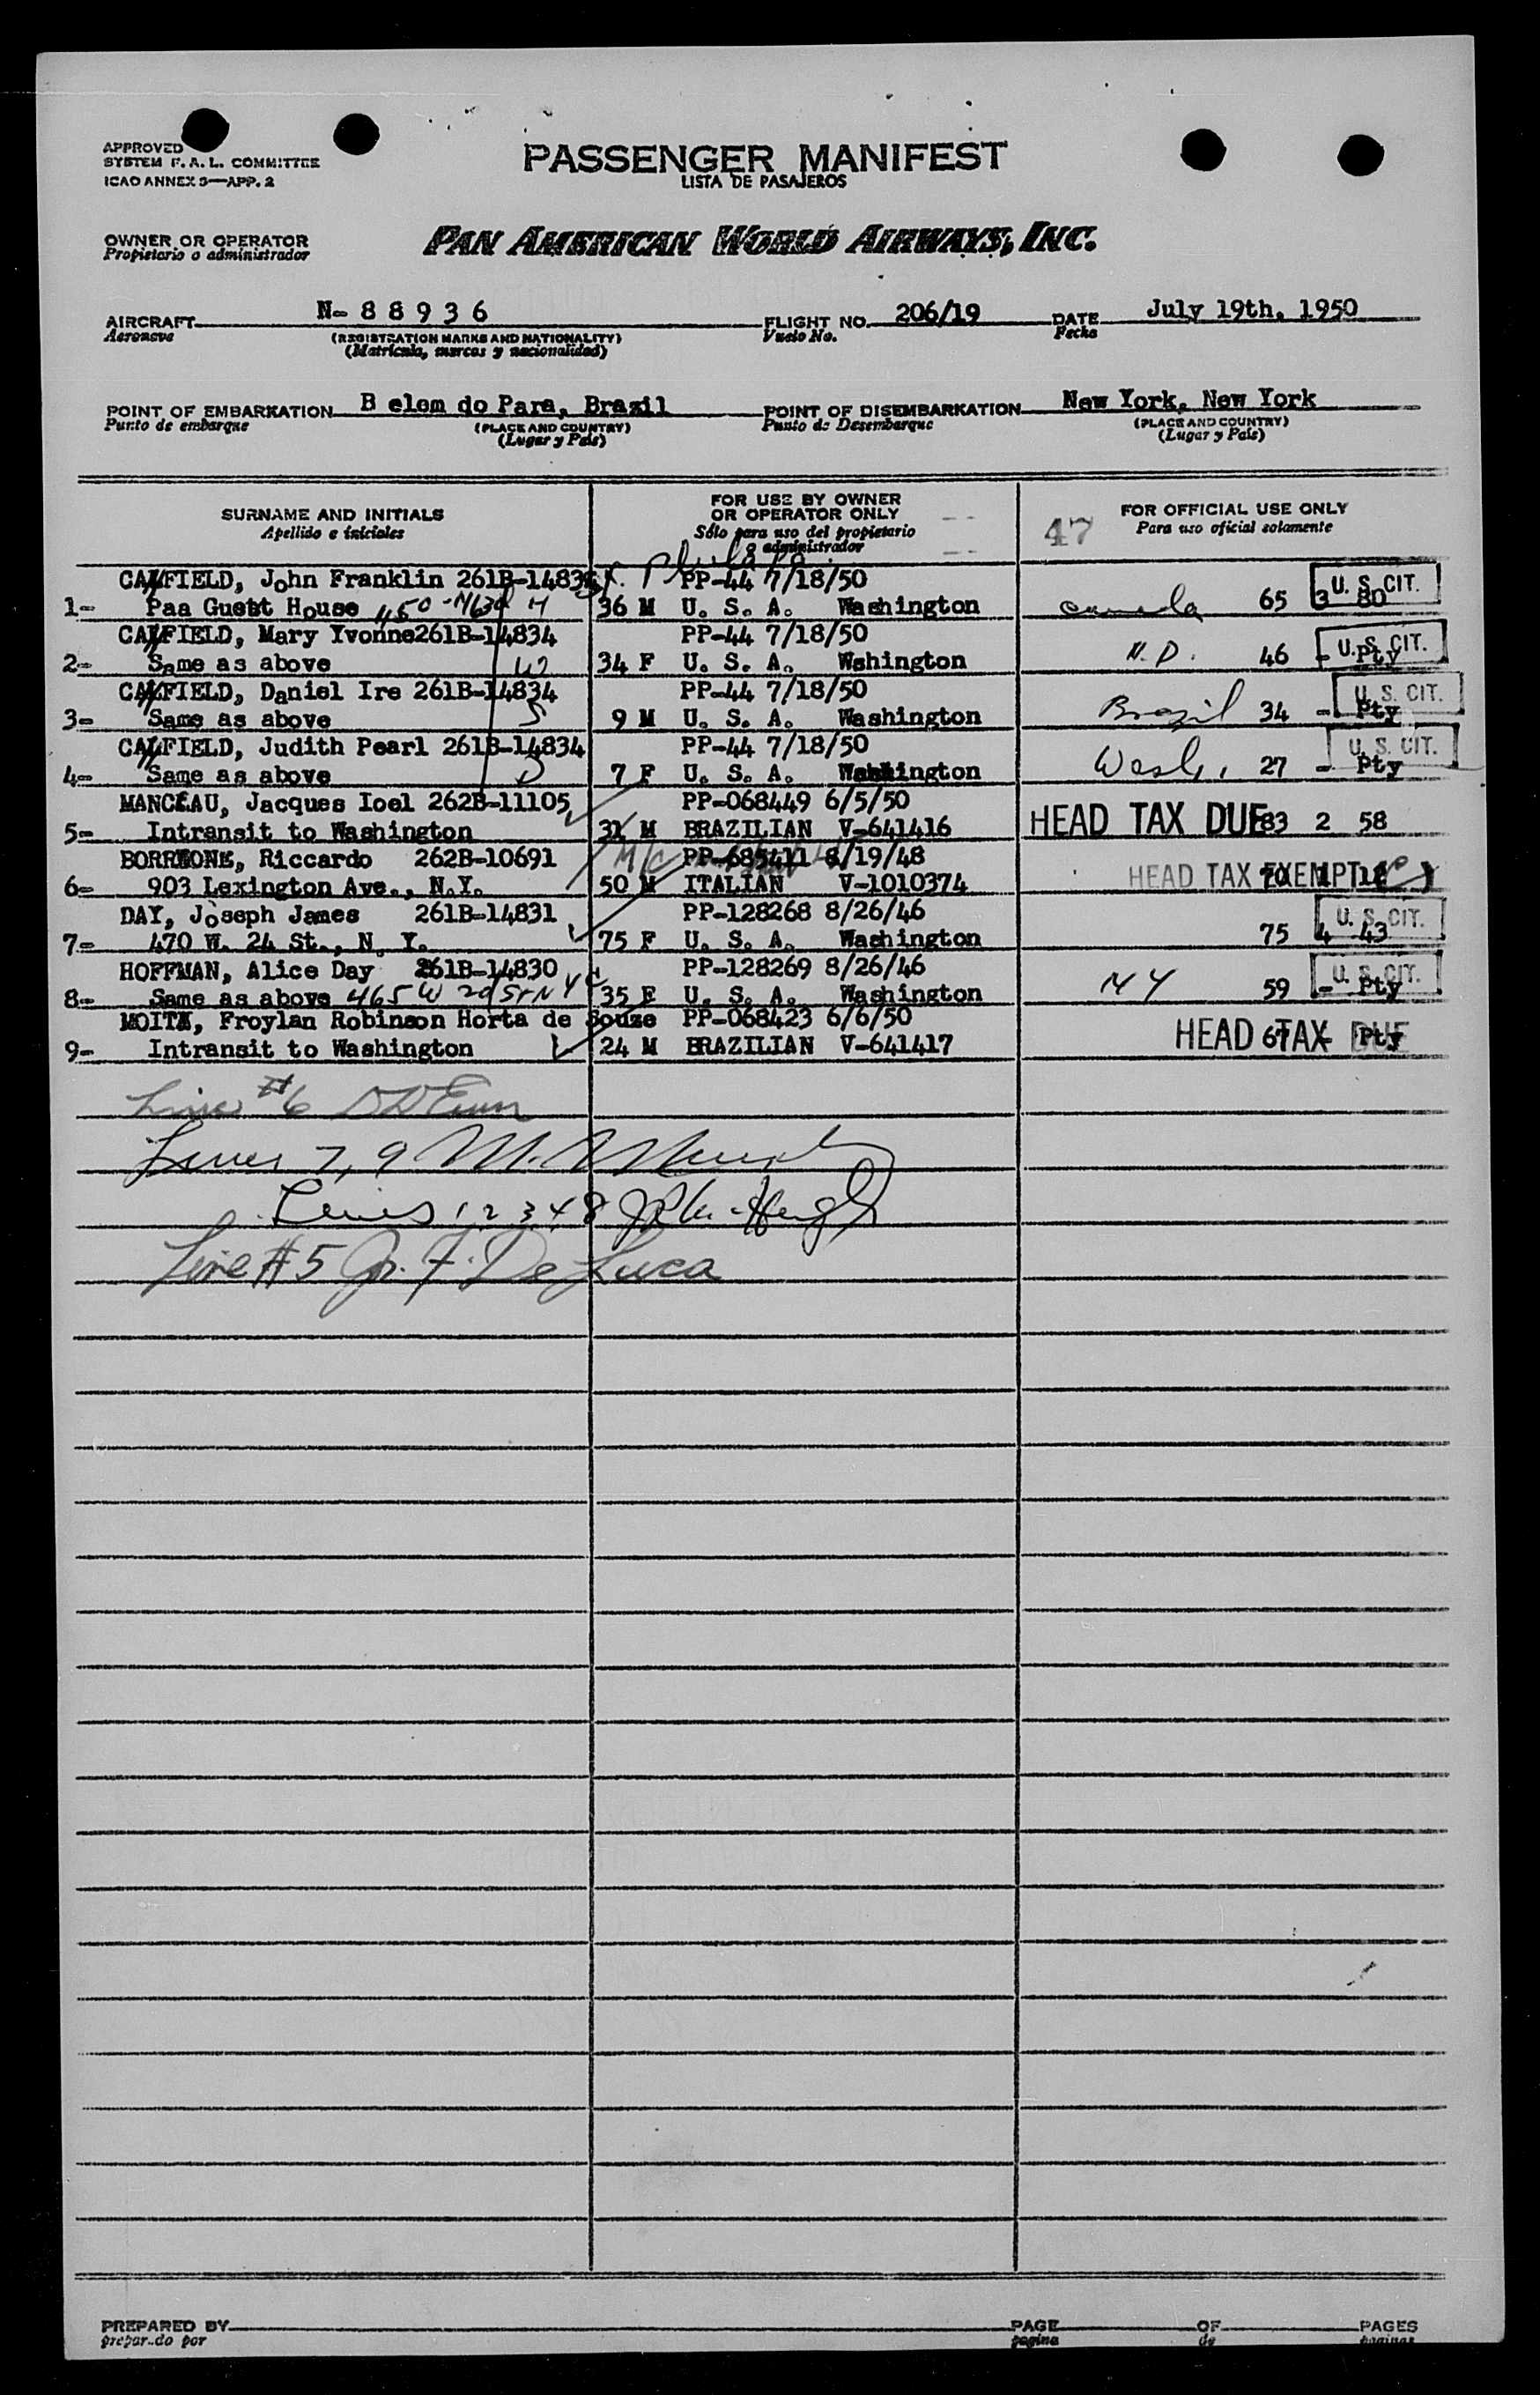 APPROVED
SYSTEM F. A. L. COMMITTEE
ICAO ANNEX 9—APP. 2
PASSENGER MANIFEST
LISTA DE PASAJEROS
OWNER OR OPERATOR
Propietario o administrador
PAN AMERICAN WORLD AIRWAYS, INC.
AIRCRAFT N- 8 8 9 3 6 FLIGHT NO. 206/19 DATE July 19th, 1950
Aeronave (REGISTRATION MARKS AND NATIONALITY) Vuelo No. Fecha
(Matrícula, marcas y nacionalidad)
POINT OF EMBARKATION B elem do Para, Brazil POINT OF DISEMBARKATION New York, New York
Punto de embarque (PLACE AND COUNTRY) Punto de Desembarque (PLACE AND COUNTRY)
(Lugar y País) (Lugar y País)
SURNAME AND INITIALS FOR USE BY OWNER OR OPERATOR ONLY 47 FOR OFFICIAL USE ONLY
Apellido e iniciales Sólo para uso del propietario o administrador Para uso oficial solamente
CANFIELD, John Franklin 261B-14834 PP-44 7/18/50
1- Paa Guest House 36 M U. S. A. Washington Canada 65 3 80 U. S. CIT.
CANFIELD, Mary Yvonne261B-14834 PP-44 7/18/50
2- Same as above W 34 F U. S. A. Wshington N. D. 46 - Pty U. S. CIT.
CANFIELD, Daniel Ire 261B-14834 PP-44 7/18/50
3- Same as above S 9 M U. S. A. Washington Brazil 34 - Pty U. S. CIT.
CANFIELD, Judith Pearl 261B-14834 PP-44 7/18/50
4- Same as above D 7 F U. S. A. Washington Wash. 27 - Pty U. S. CIT.
MANCEAU, Jacques Ioel 262B-11105 PP-068449 6/5/50
5- Intransit to Washington 31 M BRAZILIAN V-641416 HEAD TAX DUE 83 2 58
Riccardo 262B-10691 PP-685411 8/19/48
6- 903 Lexington Ave., N.Y. 50 M ITALIAN V-1010374 HEAD TAX EXEMPT
DAY, Joseph James 261B-14831 PP-128268 8/26/46
7- 470 W. 24 St., N. Y. 75 F U. S. A. Washington 75 4 43 U. S. CIT.
HOFFMAN, Alice Day 261B-14830 PP-128269 8/26/46
8- Same as above 465 W 20 St N Y C 35 F U. S. A. Washington N Y 59 - Pty U. S. CIT.
MOITA, Froylan Robinson Horta de Souze PP-068423 6/6/50
9- Intransit to Washington 24 M BRAZILIAN V-641417 HEAD TAX DUE 67 - Pty
Line #6
Lines 7, 9 M.
Lines 1 2 3 4 8
Line #5 F. De Luca
PREPARED BY PAGE OF PAGES
preparado por pagina de paginas